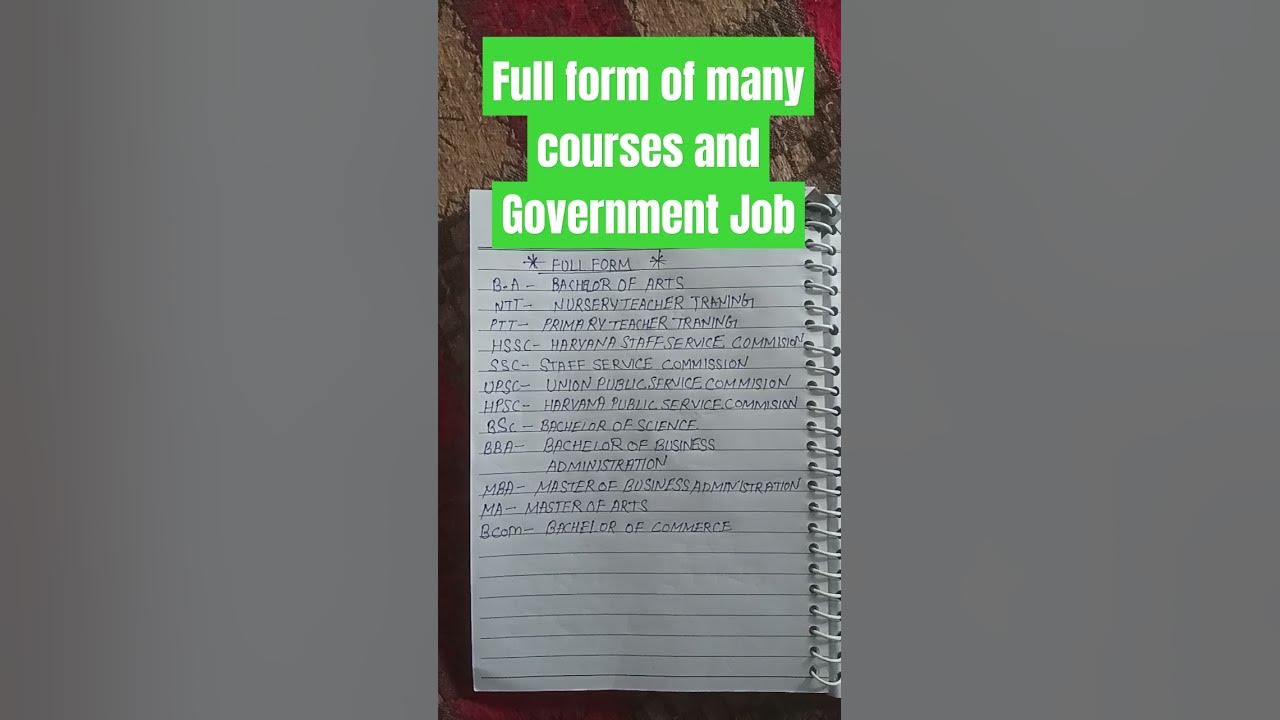 Full form of many
courses and
Government Job
* FULL FORM *
B.A - BACHLOR OF ARTS
NTT - NURSERY TEACHER TRANING
PTT - PRIMARY TEACHER TRANING
HSSC - HARYANA STAFF SERVICE COMMISION
SSC - STAFF SERVICE COMMISSION
UPSC - UNION PUBLIC SERVICE COMMISION
HPSC - HARYANA PUBLIC SERVICE COMMISION
BSc - BACHELOR OF SCIENCE
BBA - BACHELOR OF BUSINESS
ADMINISTRATION
MBA - MASTER OF BUSINESS ADMINISTRATION
MA - MASTER OF ARTS
Bcom - BACHELOR OF COMMERCE